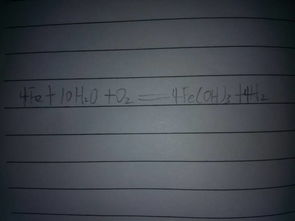 4Fe+10H₂O+O₂=4Fe(OH)₃+4H₂